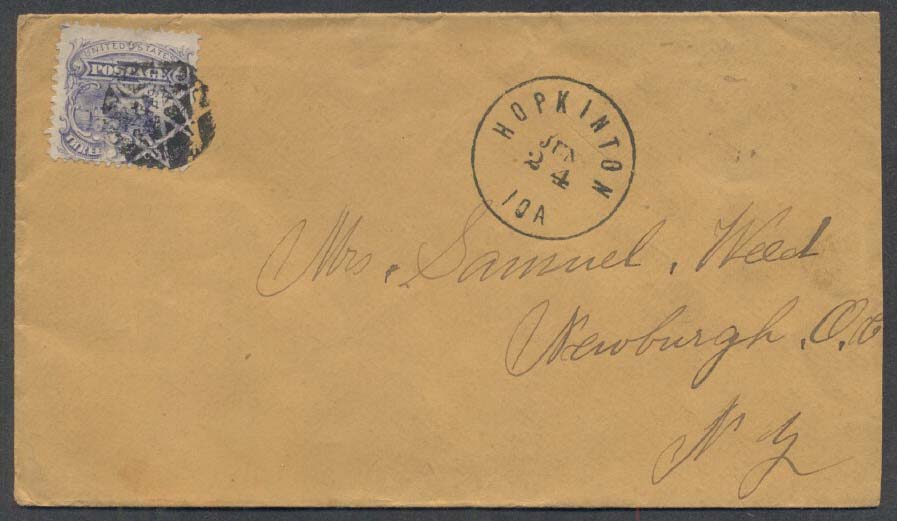 UNITED STATES
POSTAGE
THREE
HOPKINTON
JUN
24
IOA
Mrs. Samuel. Weed
Newburgh. O. C
N Y